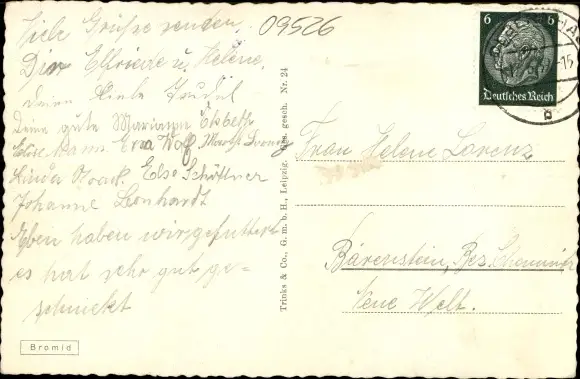 Viele Grüsse senden,
09526
Elfriede u. Helene,
deine liebe
Deine gute Marianne Elsbeth
Else Erna Wolf
Linda Noack, Else Schöttner
Johanne Leonhardt
Eben haben wir gefuttert
es hat sehr gut ge-
schmeckt
Bromid
Trinks & Co., G. m. b. H., Leipzig. Ges. gesch. Nr. 24
6 6
Deutsches Reich
-15
b
Frau Helene Lorenz
Bärenstein, Bez. Chemnitz
Neue Welt.